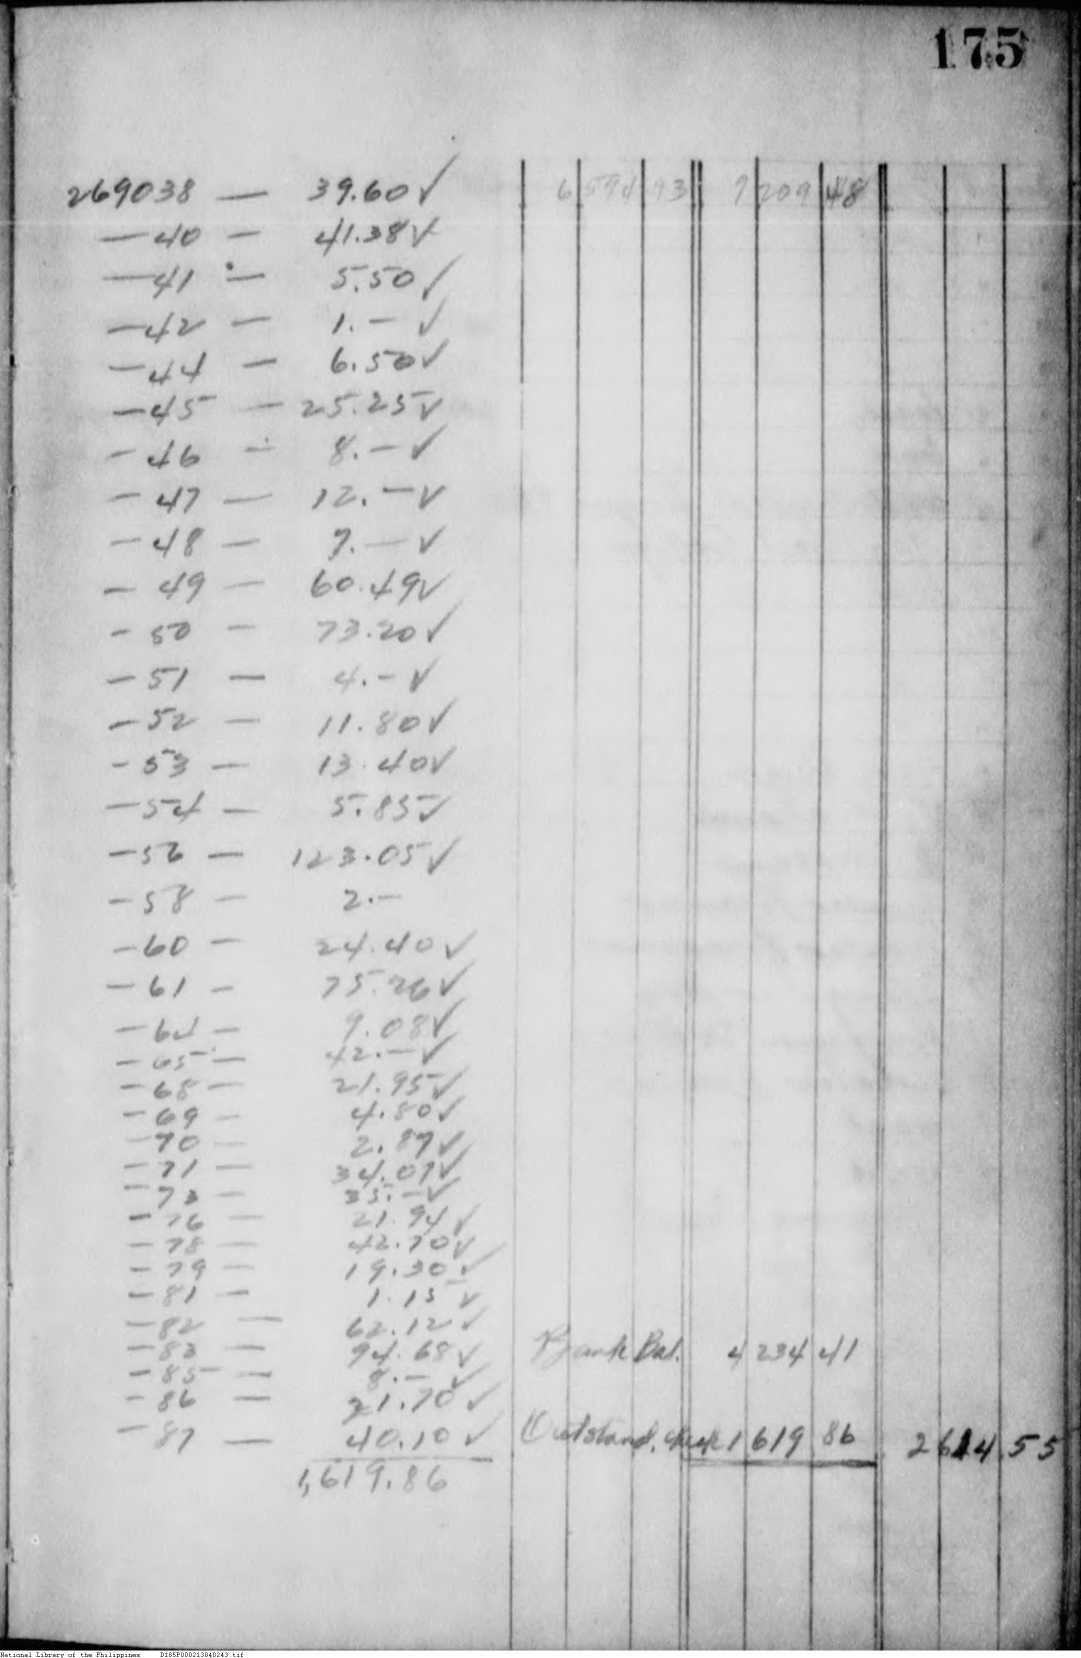 175
269038 — 39.60 ✓ 6 594 93 7 209 48
— 40 — 41.38 ✓
— 41 — 5.50 ✓
— 42 — 1.— ✓
— 44 — 6.50 ✓
— 45 — 25.25 ✓
— 46 — 8.— ✓
— 47 — 12.— ✓
— 48 — 7.— ✓
— 49 — 60.49 ✓
— 50 — 73.20 ✓
— 51 — 4.— ✓
— 52 — 11.80 ✓
— 53 — 13.40 ✓
— 54 — 5.85 ✓
— 56 — 123.05 ✓
— 58 — 2.—
— 60 — 24.40 ✓
— 61 — 75.26 ✓
— 64 — 9.08 ✓
— 65 — 42.— ✓
— 68 — 21.95 ✓
— 69 — 4.80 ✓
— 70 — 2.87 ✓
— 71 — 34.07 ✓
— 73 — 35.— ✓
— 76 — 21.94 ✓
— 78 — 42.70 ✓
— 79 — 19.30 ✓
— 81 — 1.15 ✓
— 82 — 62.12 ✓
— 83 — 94.68 ✓ Bank Bal. 4 234 41
— 85 — 8.— ✓
— 86 — 21.70 ✓
— 87 — 40.10 ✓ Outstand. check 1 619 86 2614.55
1,619.86
National Library of the Philippines D185P000213040243.tif